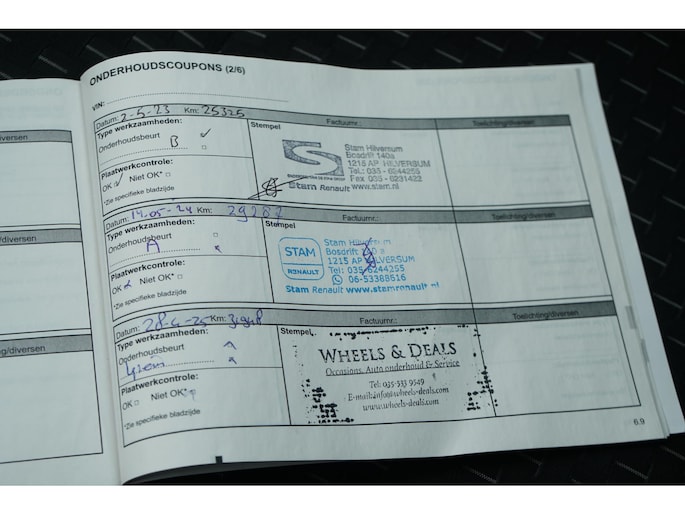 ONDERHOUDSCOUPONS (2/6)
VIN:
Datum: 2-5-23 Km: 25325
Factuurnr.:
Toelichting/diversen
Type werkzaamheden:
Stempel
Onderhoudsbeurt
B
Plaatwerkcontrole:
OK Niet OK*
*Zie specifieke bladzijde
Stam Hilversum
Bosdrift 140a
1215 AP HILVERSUM
Tel.: 035 - 6244255
Fax 035 - 6231422
Stam Renault www.stam.nl
Datum: 14-05-24 Km:
Factuurnr.:
Toelichting/diversen
Type werkzaamheden:
Stempel
Onderhoudsbeurt
A
Plaatwerkcontrole:
OK Niet OK*
*Zie specifieke bladzijde
STAM
RENAULT
Stam Hilversum
Bosdrift
1215 AP HILVERSUM
Tel: 035-6244255
06-53368616
Stam Renault www.stamrenault.nl
Datum: 28-4-25 Km:
Factuurnr.:
Toelichting/diversen
Type werkzaamheden:
Stempel
Onderhoudsbeurt
Plaatwerkcontrole:
OK Niet OK*
*Zie specifieke bladzijde
WHEELS & DEALS
Occasions, Auto onderhoud & Service
Tel: 035-533 9549
E-mail:info@wheels-deals.com
www.wheels-deals.com
6.9